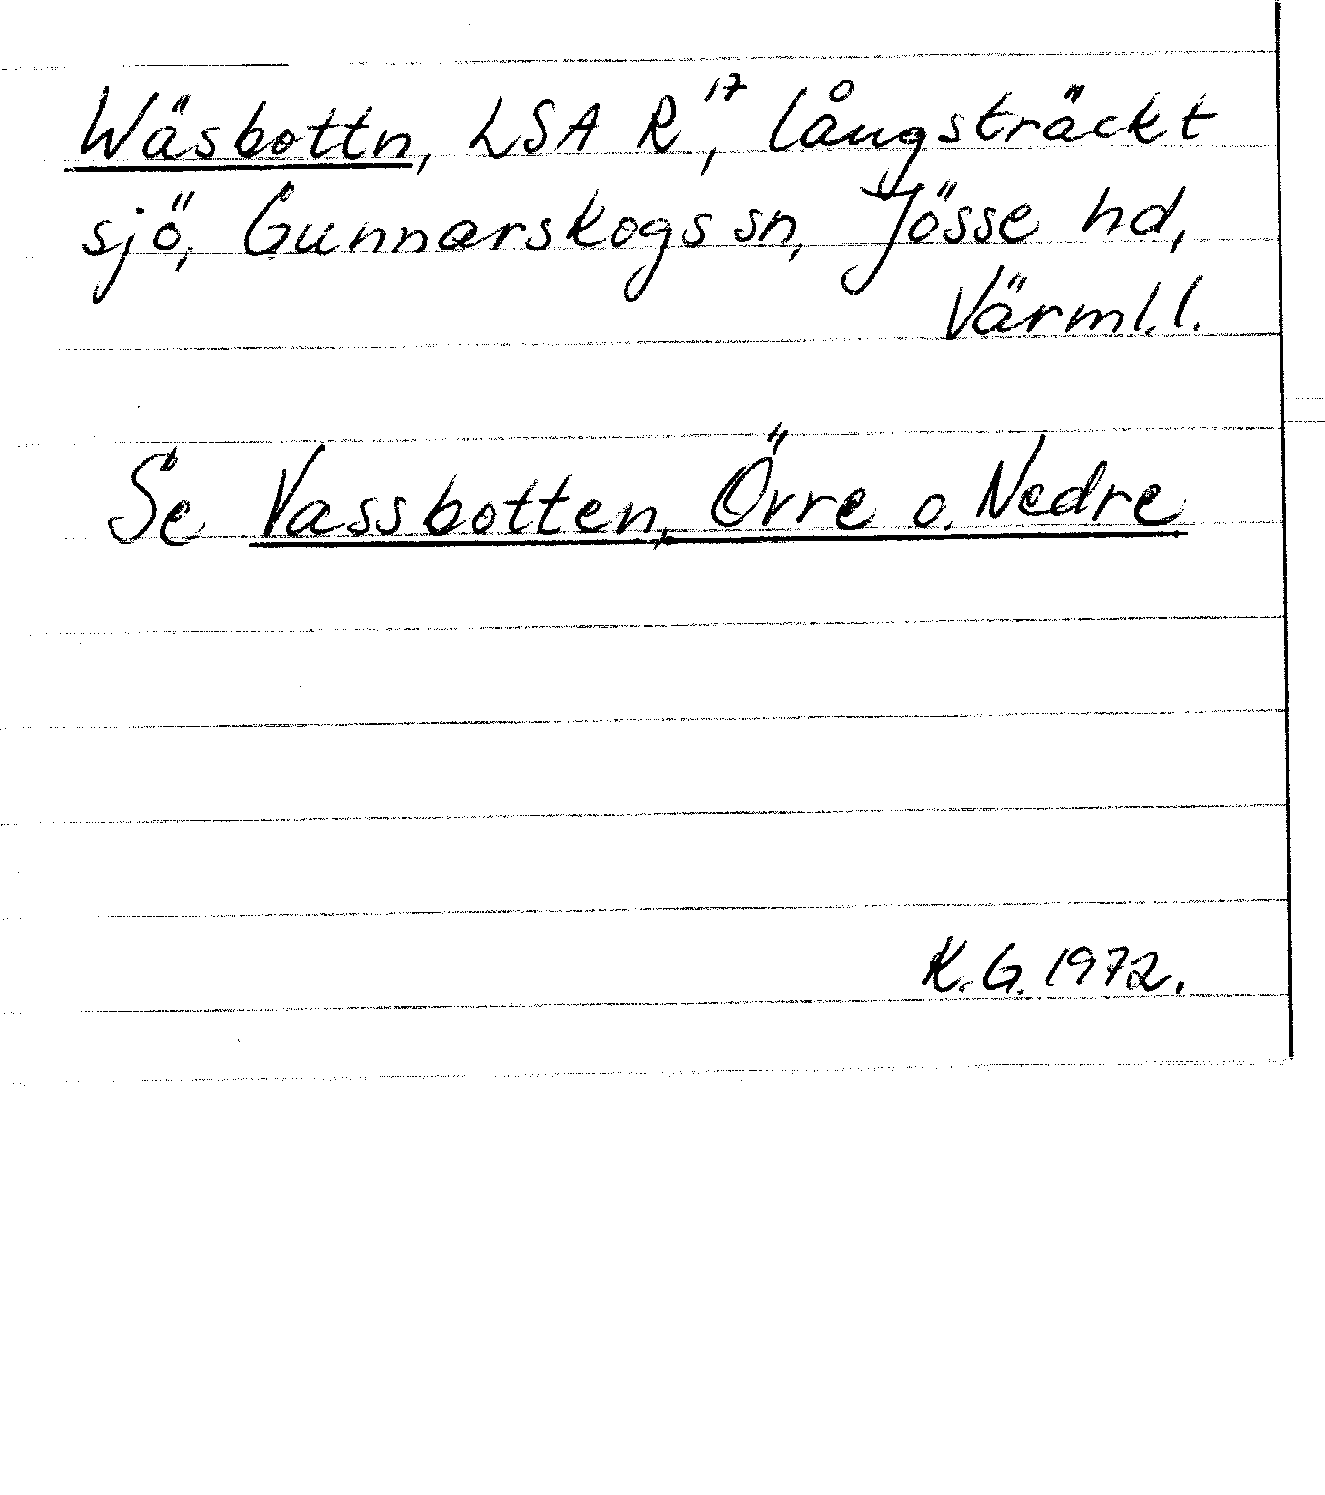 Wäsbottn, LSA R¹⁷, långsträckt
sjö, Gunnarskogs sn, Jösse hd,
Värml.l.
Se Vassbotten, Övre o. Nedre
K.G. 1972.